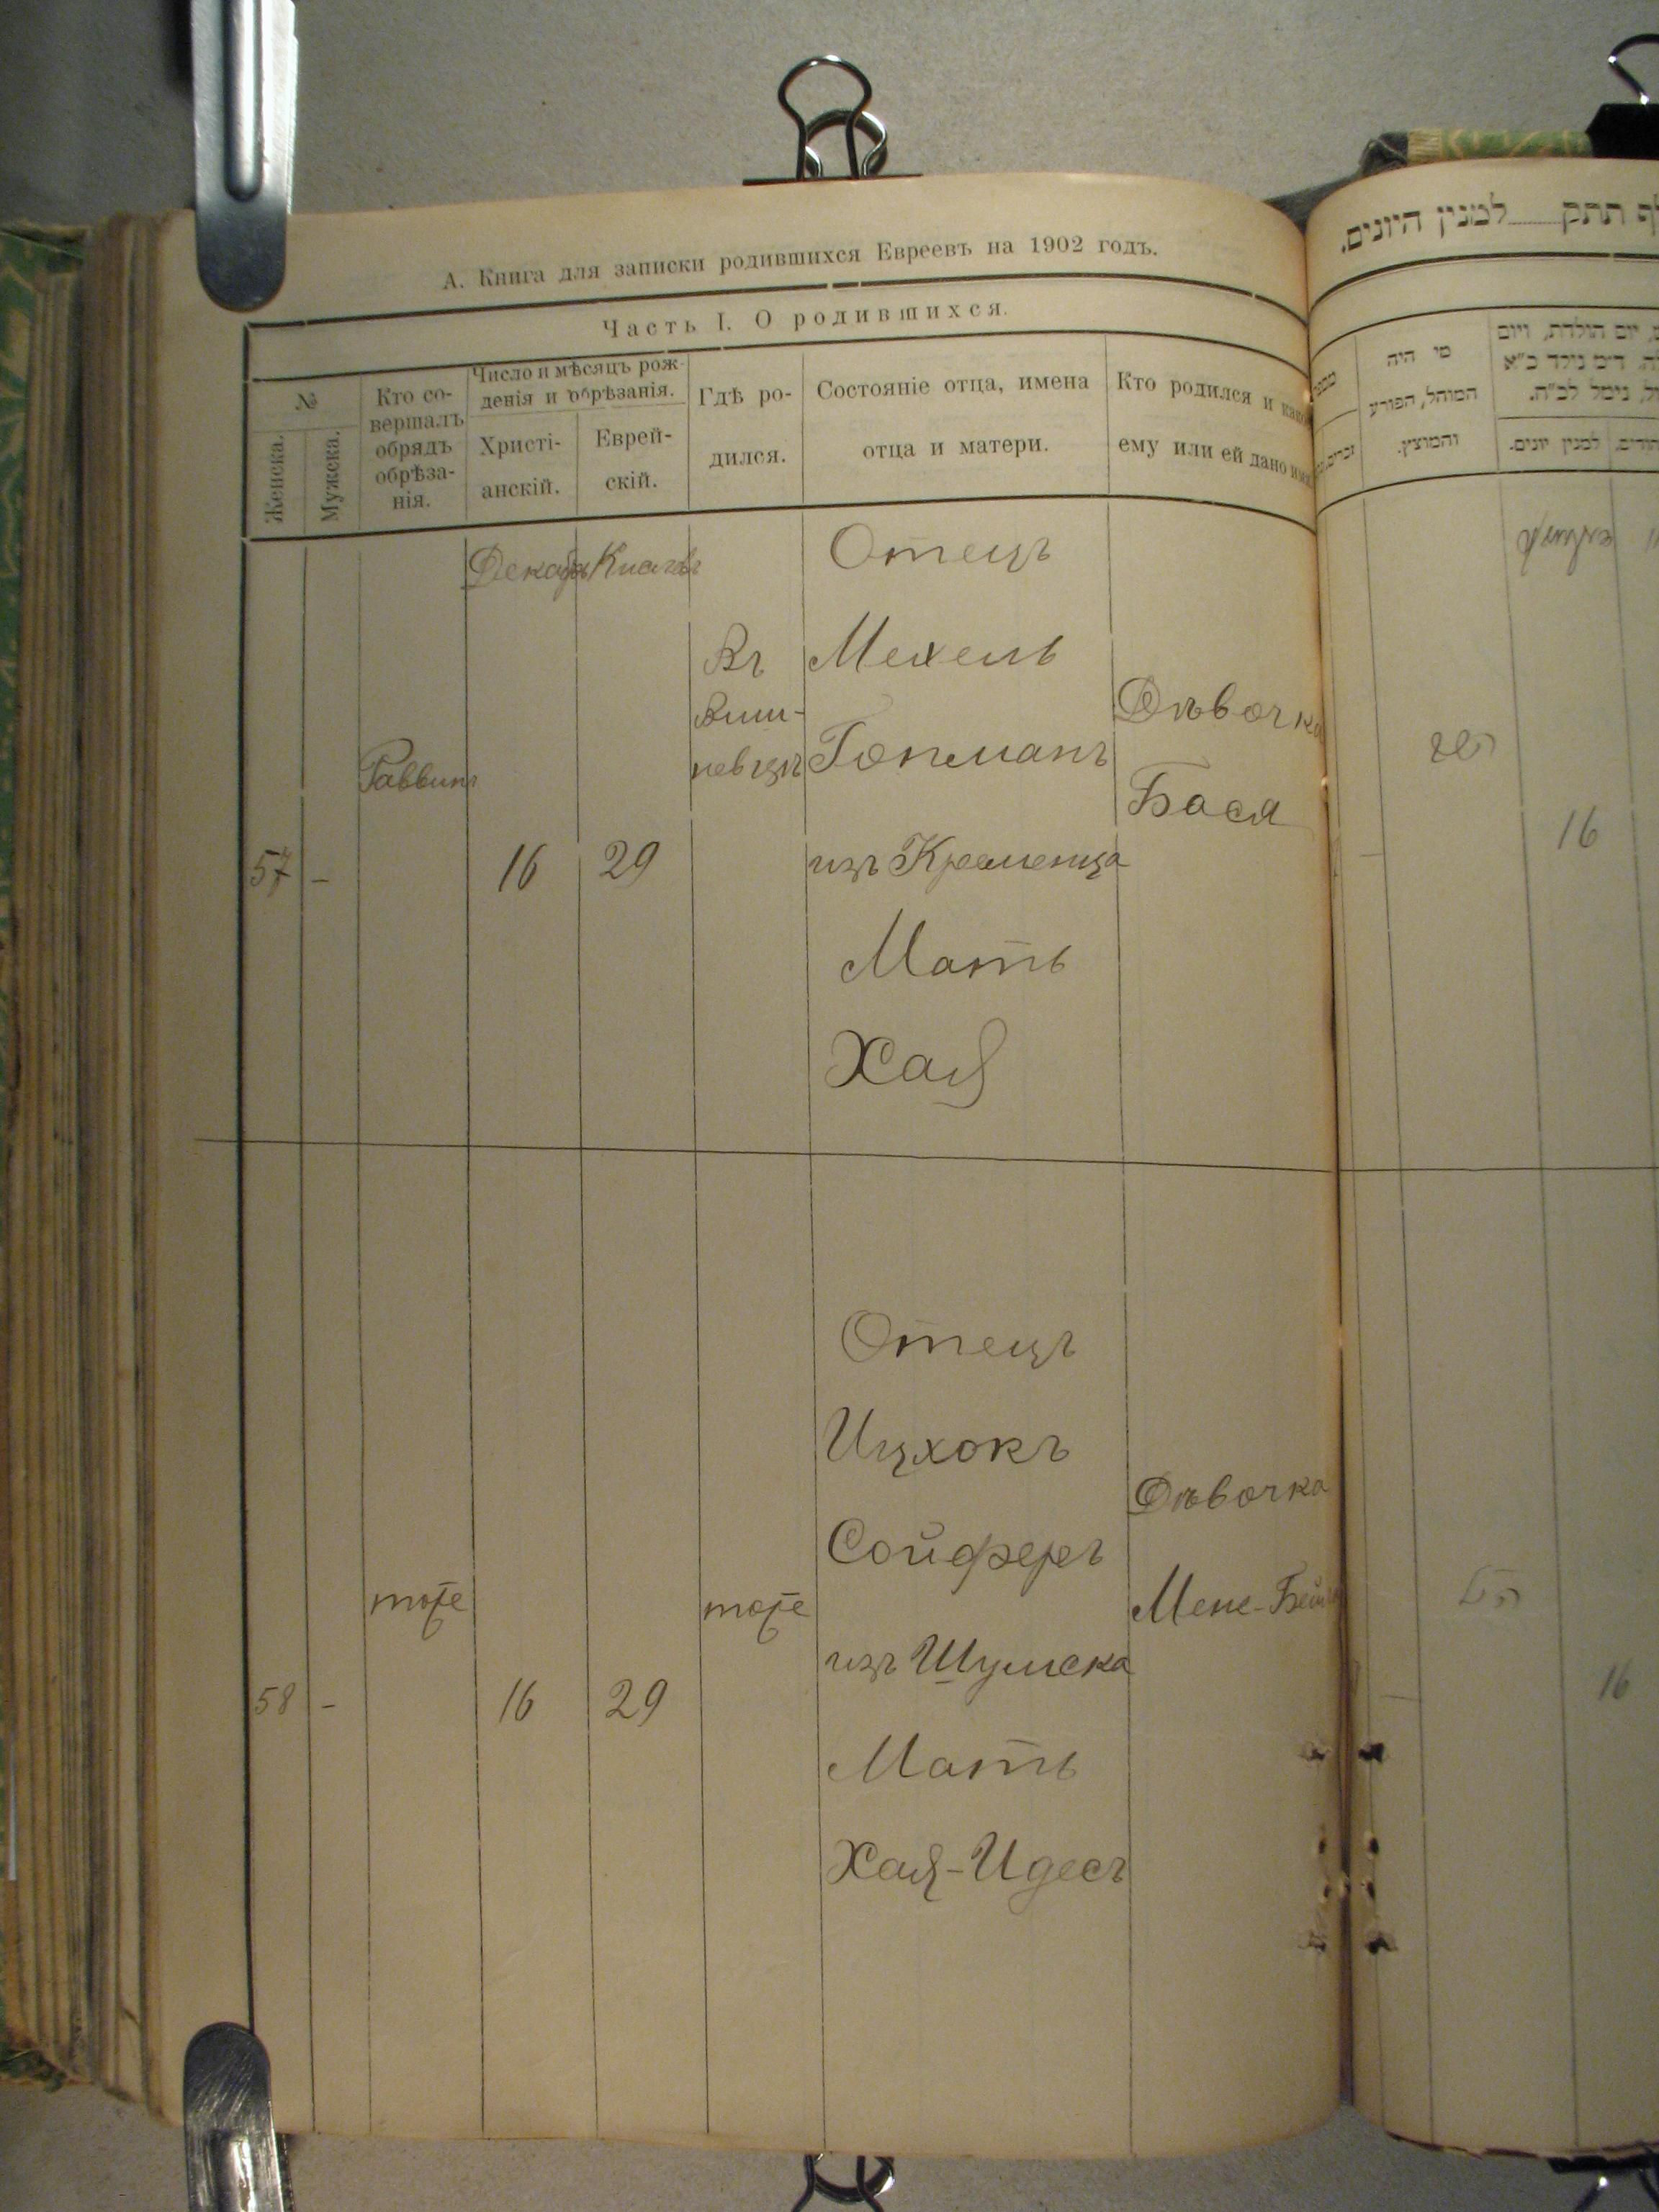 А. Книга для записки родившихся Евреевъ на 1902 годъ.
Часть I. О родившихся.
№
Женска.
Мужска.
Кто со-
вершалъ
обрядъ
обрѣза-
нія.
Число и мѣсяцъ рож-
денія и обрѣзанія.
Христі-
анскій.
Еврей-
скій.
Гдѣ ро-
дился.
Состояніе отца, имена
отца и матери.
Кто родился и како
ему или ей дано имя
57
-
Раввинъ
16
29
Въ
Виш-
невцѣ
Отецъ
Мехель
изъ Кременца
Мать
Хая
Дѣвочка
Бася
58
-
тоже
16
29
тоже
Отецъ
Ицхокъ
Сойферъ
изъ Шумска
Мать
Хая-Идесъ
Дѣвочка
תתק למנין היונים.
מי היה
המוהל, הפורע
והמוצץ.
יום הולדת, ויום
למנין יונים.
16
16